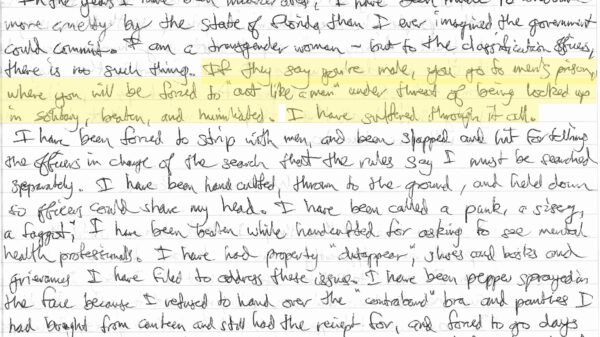 In the years I have been incarcerated, I have been made to endure
more cruelty by the state of Florida than I ever imagined the government
could commit. I am a transgender woman - but to the classification officers,
there is no such thing. If they say you're male, you go to men's prison,
where you will be forced to "act like a man" under threat of being locked up
in solitary, beaten, and humiliated. I have suffered through it all.
I have been forced to strip with men, and been slapped and hit for telling
the officers in charge of the search that the rules say I must be searched
separately. I have been handcuffed, thrown to the ground, and held down
so officers could shave my head. I have been called a punk, a sissy,
a faggot. I have been beaten while handcuffed for asking to see mental
health professionals. I have had property "disappear", shoes and books and
grievances I have filed to address these issues. I have been pepper sprayed in
the face because I refused to hand over the "contraband" bra and panties I
had bought from canteen and still had the reciept for, and forced to go days